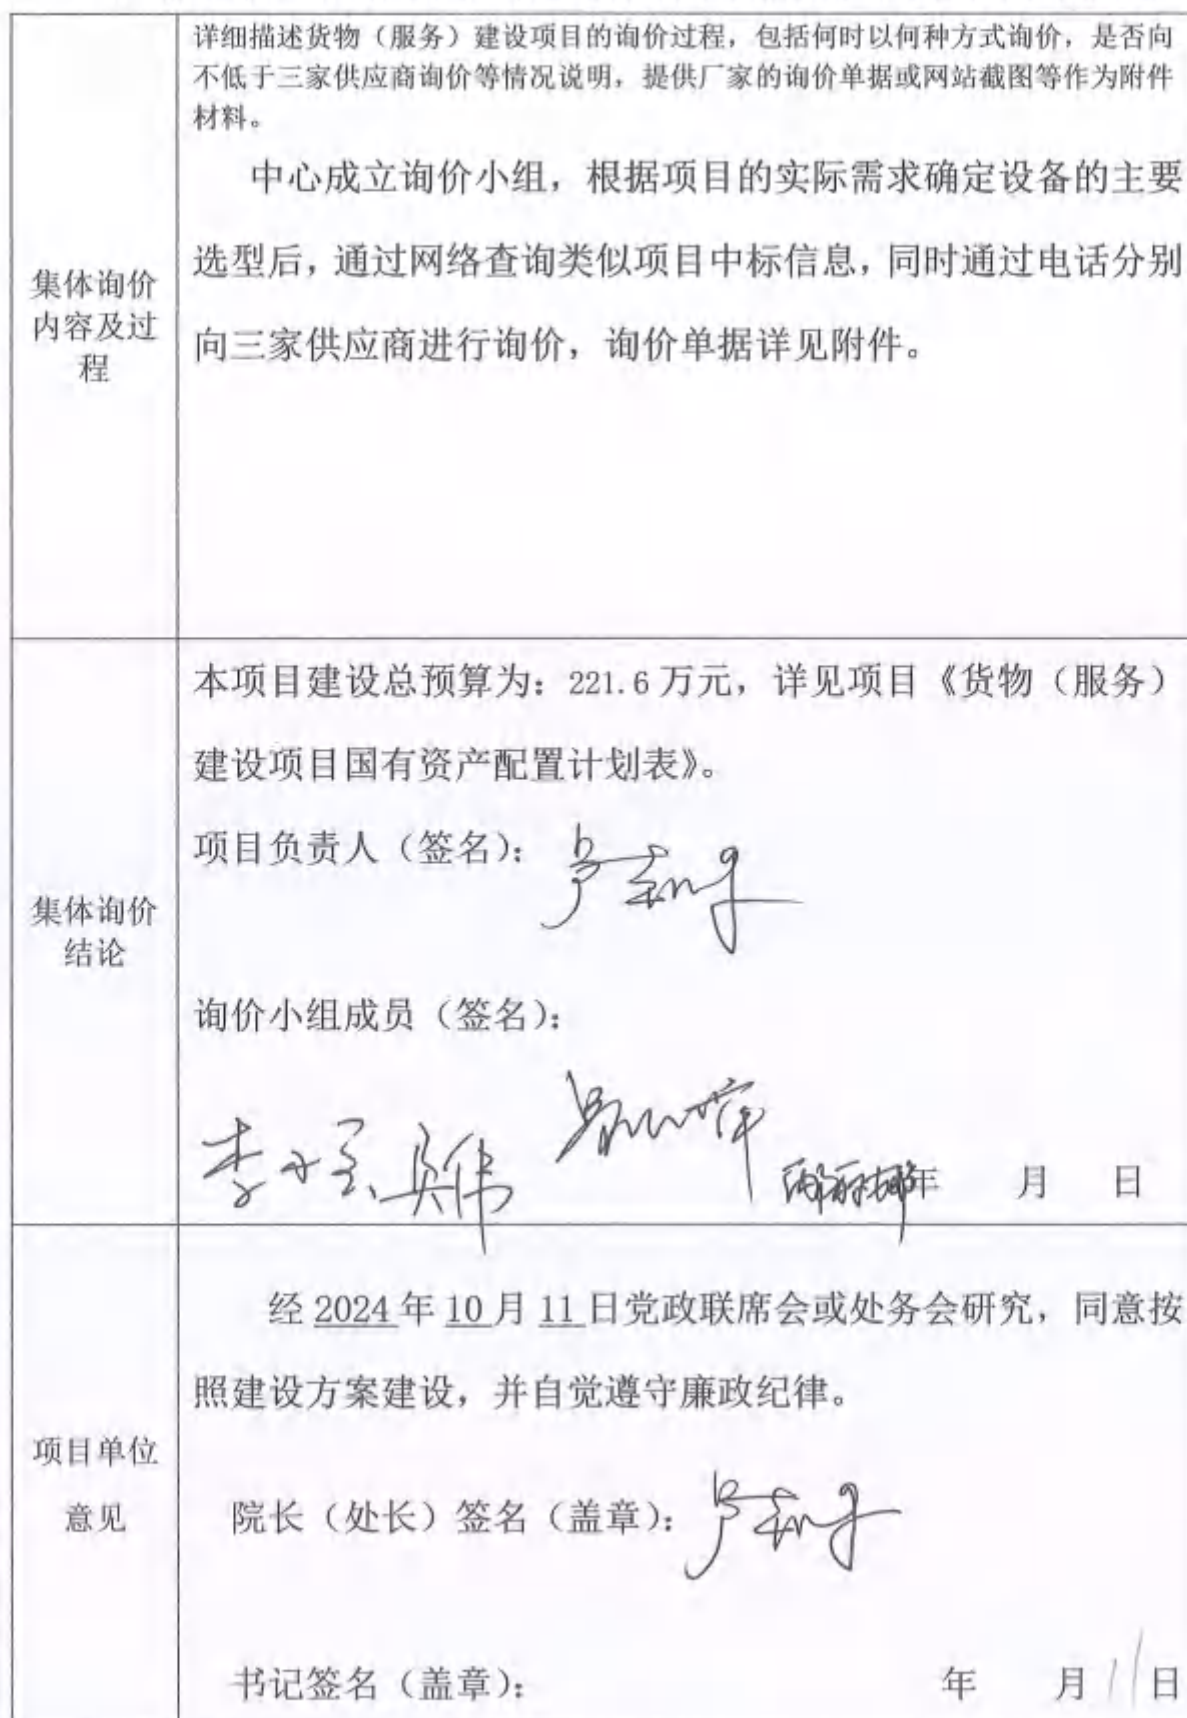 详细描述货物（服务）建设项目的询价过程，包括何时以何种方式询价，是否向
不低于三家供应商询价等情况说明，提供厂家的询价单据或网站截图等作为附件
材料。
中心成立询价小组，根据项目的实际需求确定设备的主要
选型后，通过网络查询类似项目中标信息，同时通过电话分别
向三家供应商进行询价，询价单据详见附件。
集体询价
内容及过
程
本项目建设总预算为：221.6万元，详见项目《货物（服务）
建设项目国有资产配置计划表》。
项目负责人（签名）：
询价小组成员（签名）：
年 月 日
集体询价
结论
经 2024 年 10 月 11 日党政联席会或处务会研究，同意按
照建设方案建设，并自觉遵守廉政纪律。
院长（处长）签名（盖章）：
书记签名（盖章）： 年 月 11 日
项目单位
意见